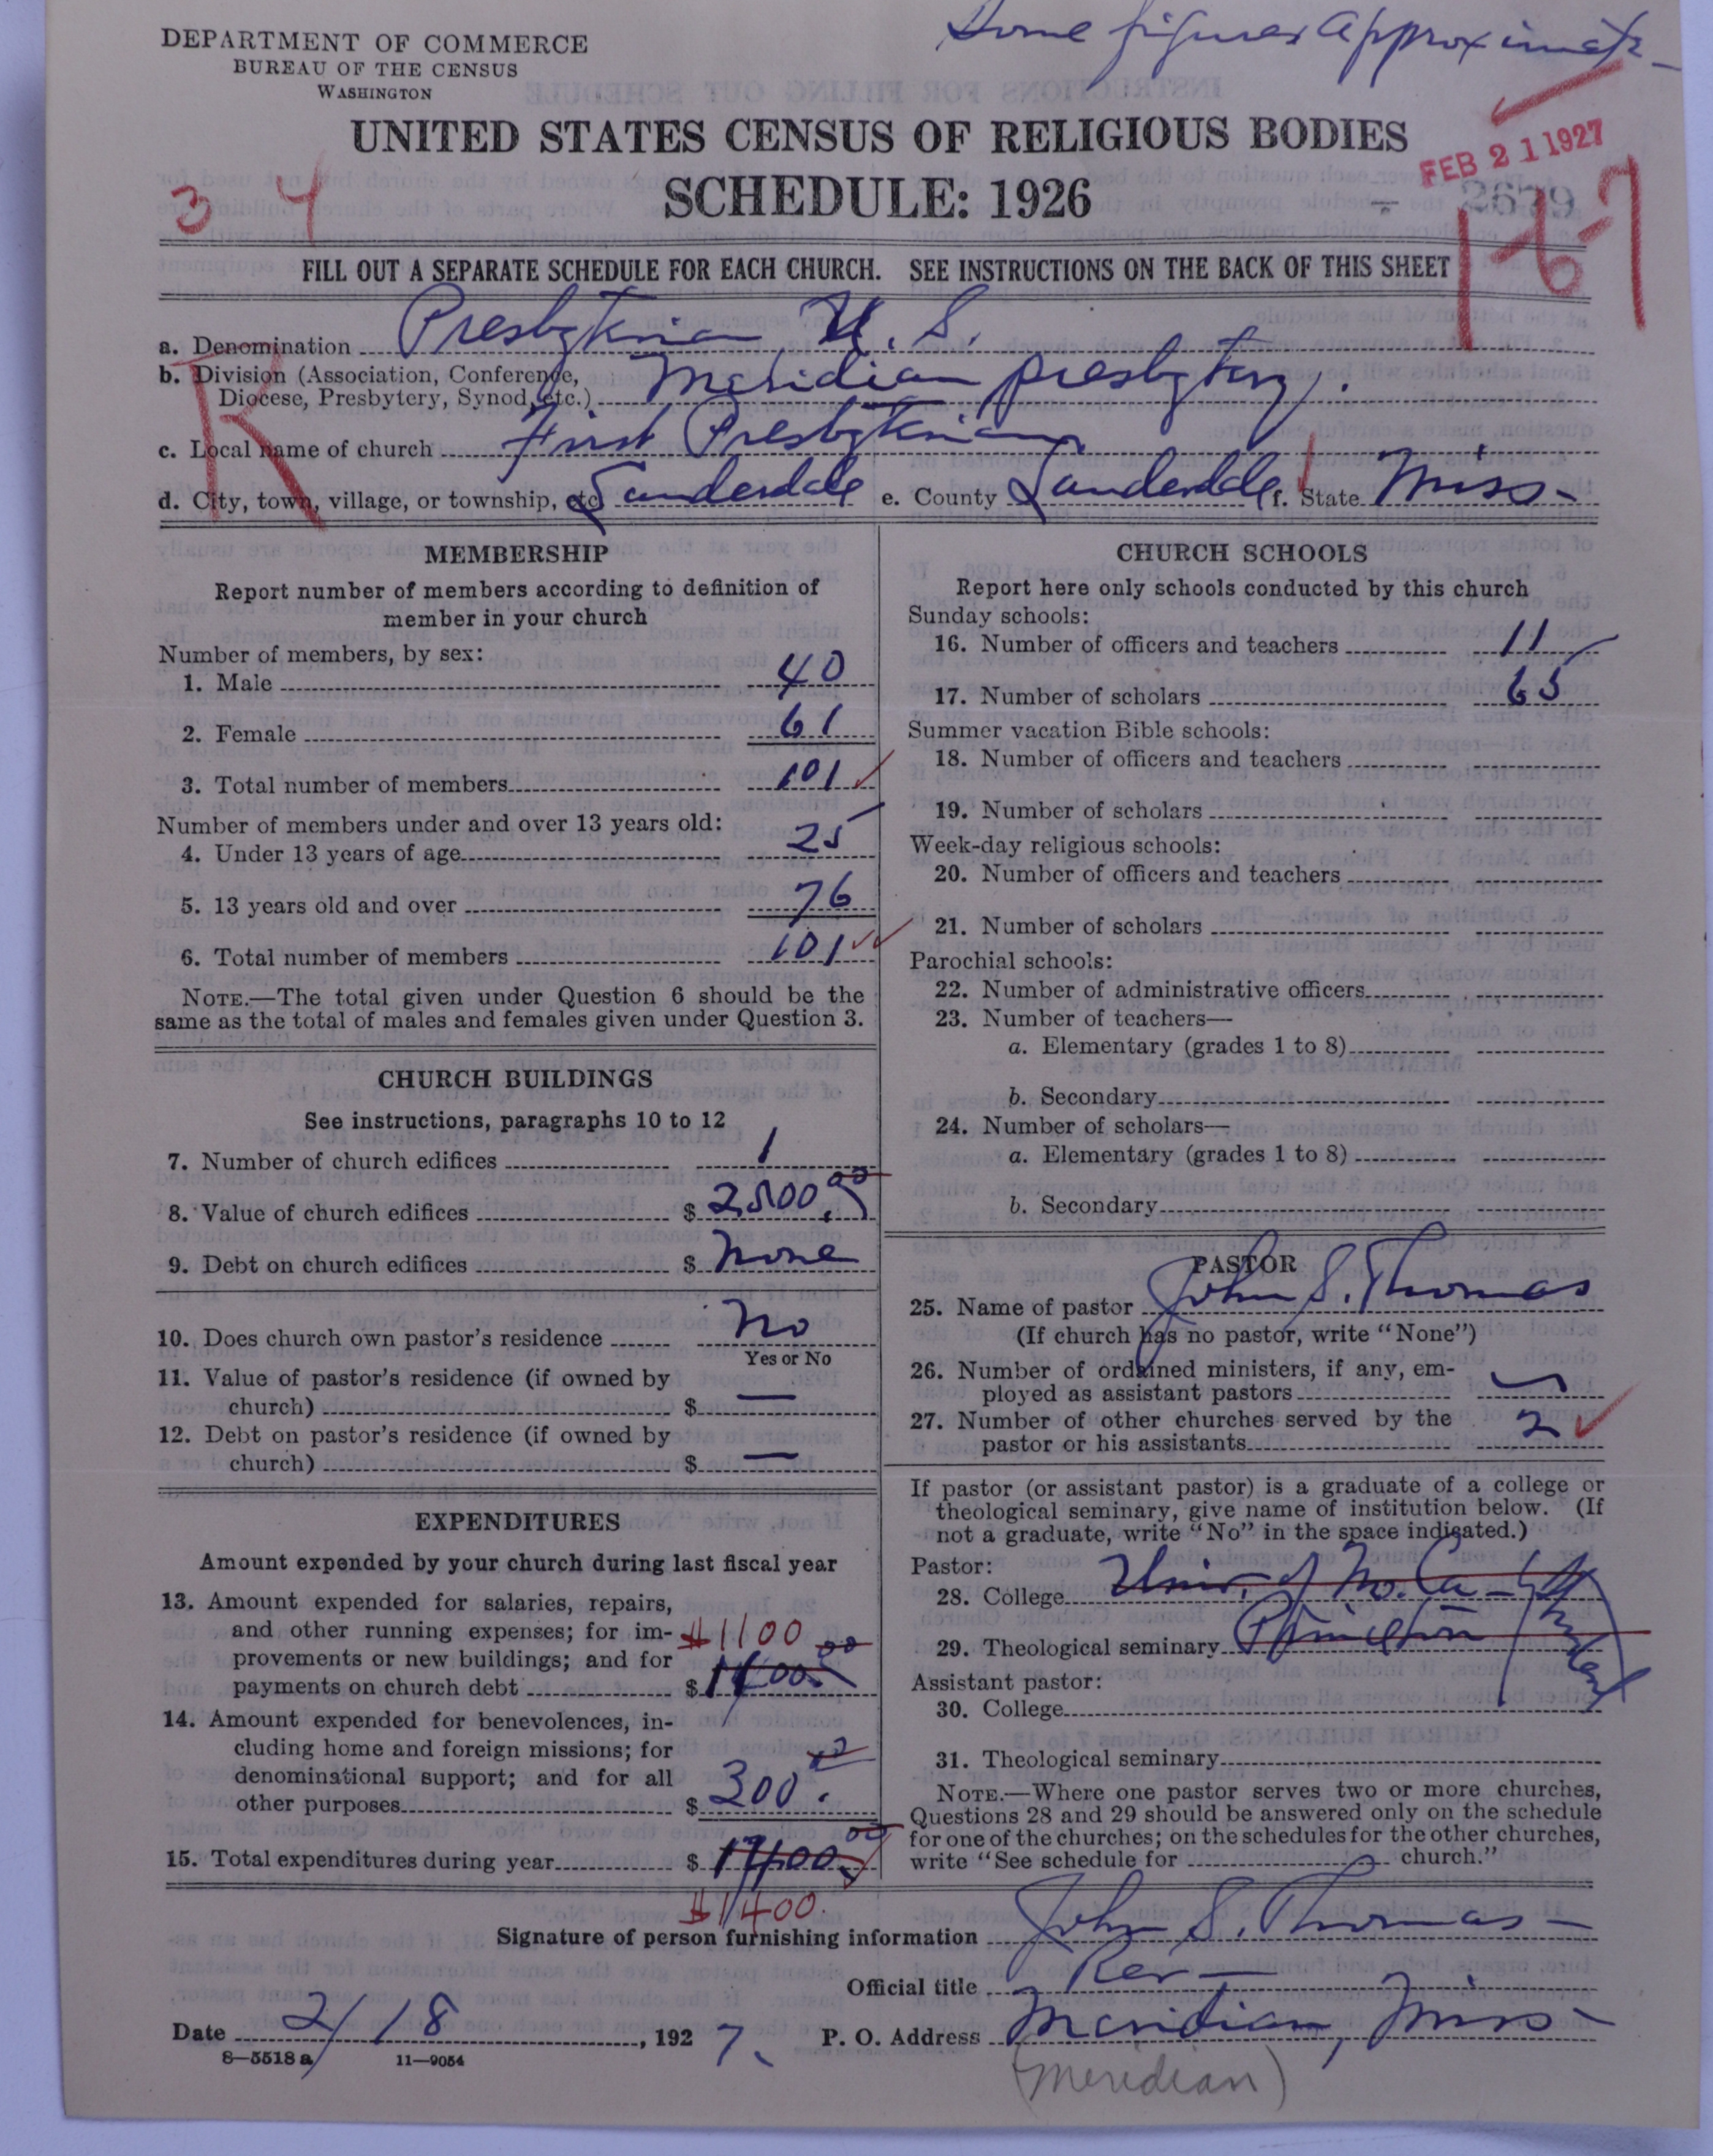 Some figures approximate
DEPARTMENT OF COMMERCE
BUREAU OF THE CENSUS
WASHINGTON
UNITED STATES CENSUS OF RELIGIOUS BODIES
SCHEDULE: 1926
FEB 21 1927
2679
3 4
1-67
FILL OUT A SEPARATE SCHEDULE FOR EACH CHURCH. SEE INSTRUCTIONS ON THE BACK OF THIS SHEET
a. Denomination Presbyterian U.S.
b. Division (Association, Conference,
Diocese, Presbytery, Synod, etc.) Meridian presbytery.
c. Local name of church First Presbyterian
d. City, town, village, or township, etc. Lauderdale e. County Lauderdale f. State Miss.
R
MEMBERSHIP
Report number of members according to definition of
member in your church
Number of members, by sex:
1. Male 40
2. Female 61
3. Total number of members 101
Number of members under and over 13 years old:
4. Under 13 years of age 25
5. 13 years old and over 76
6. Total number of members 101
NOTE.—The total given under Question 6 should be the
same as the total of males and females given under Question 3.
CHURCH BUILDINGS
See instructions, paragraphs 10 to 12
7. Number of church edifices 1
8. Value of church edifices $ 2500.00
9. Debt on church edifices $ None
10. Does church own pastor's residence No
Yes or No
11. Value of pastor's residence (if owned by
church) $ —
12. Debt on pastor's residence (if owned by
church) $ —
EXPENDITURES
Amount expended by your church during last fiscal year
13. Amount expended for salaries, repairs,
and other running expenses; for im- $1100
provements or new buildings; and for
payments on church debt $ 1400.00
14. Amount expended for benevolences, in-
cluding home and foreign missions; for
denominational support; and for all
other purposes $ 300.
15. Total expenditures during year $ 1700.00
$1400.
CHURCH SCHOOLS
Report here only schools conducted by this church
Sunday schools:
16. Number of officers and teachers 11
17. Number of scholars 65
Summer vacation Bible schools:
18. Number of officers and teachers
19. Number of scholars
Week-day religious schools:
20. Number of officers and teachers
21. Number of scholars
Parochial schools:
22. Number of administrative officers
23. Number of teachers—
a. Elementary (grades 1 to 8)
b. Secondary
24. Number of scholars—
a. Elementary (grades 1 to 8)
b. Secondary
PASTOR
25. Name of pastor John S. Thomas
(If church has no pastor, write "None")
26. Number of ordained ministers, if any, em-
ployed as assistant pastors
27. Number of other churches served by the
pastor or his assistants 2
If pastor (or assistant pastor) is a graduate of a college or
theological seminary, give name of institution below. (If
not a graduate, write "No" in the space indicated.)
Pastor:
28. College Univ. of No. Ca
29. Theological seminary Princeton
Assistant pastor:
30. College
31. Theological seminary
NOTE.—Where one pastor serves two or more churches,
Questions 28 and 29 should be answered only on the schedule
for one of the churches; on the schedules for the other churches,
write "See schedule for church."
Signature of person furnishing information John S. Thomas
Official title Rev
Date 2/18, 1927. P. O. Address Meridian, Miss
8—5518 a 11—9054
(Meridian)